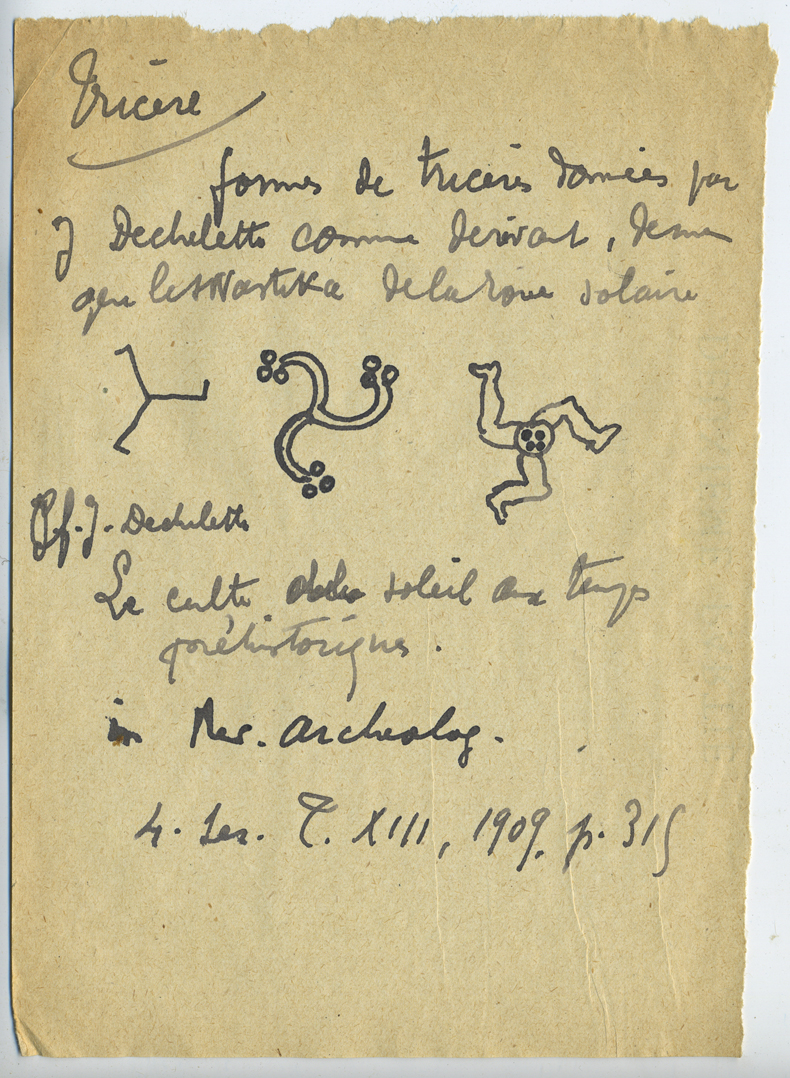 Tricère
formes de tricères données par
J Dechelette comme derivant, de même
que le swastika de la roue solaire
Cf. J. Dechelette
Le culte du soleil aux temps
préhistoriques.
in Rev. archeolog.
4. Ser. T. XIII, 1909, p. 315